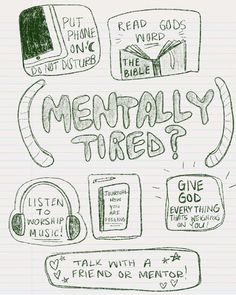 PUT
PHONE
ON
DO NOT DISTURB
READ GODS
WORD
THE
BIBLE
MENTALLY
TIRED?
LISTEN
TO
WORSHIP
MUSIC!
JOURNAL
HOW
YOU
ARE
FEELING
GIVE
GOD
EVERYTHING
THATS WEIGHING
ON YOU!
TALK WITH A
FRIEND OR MENTOR!